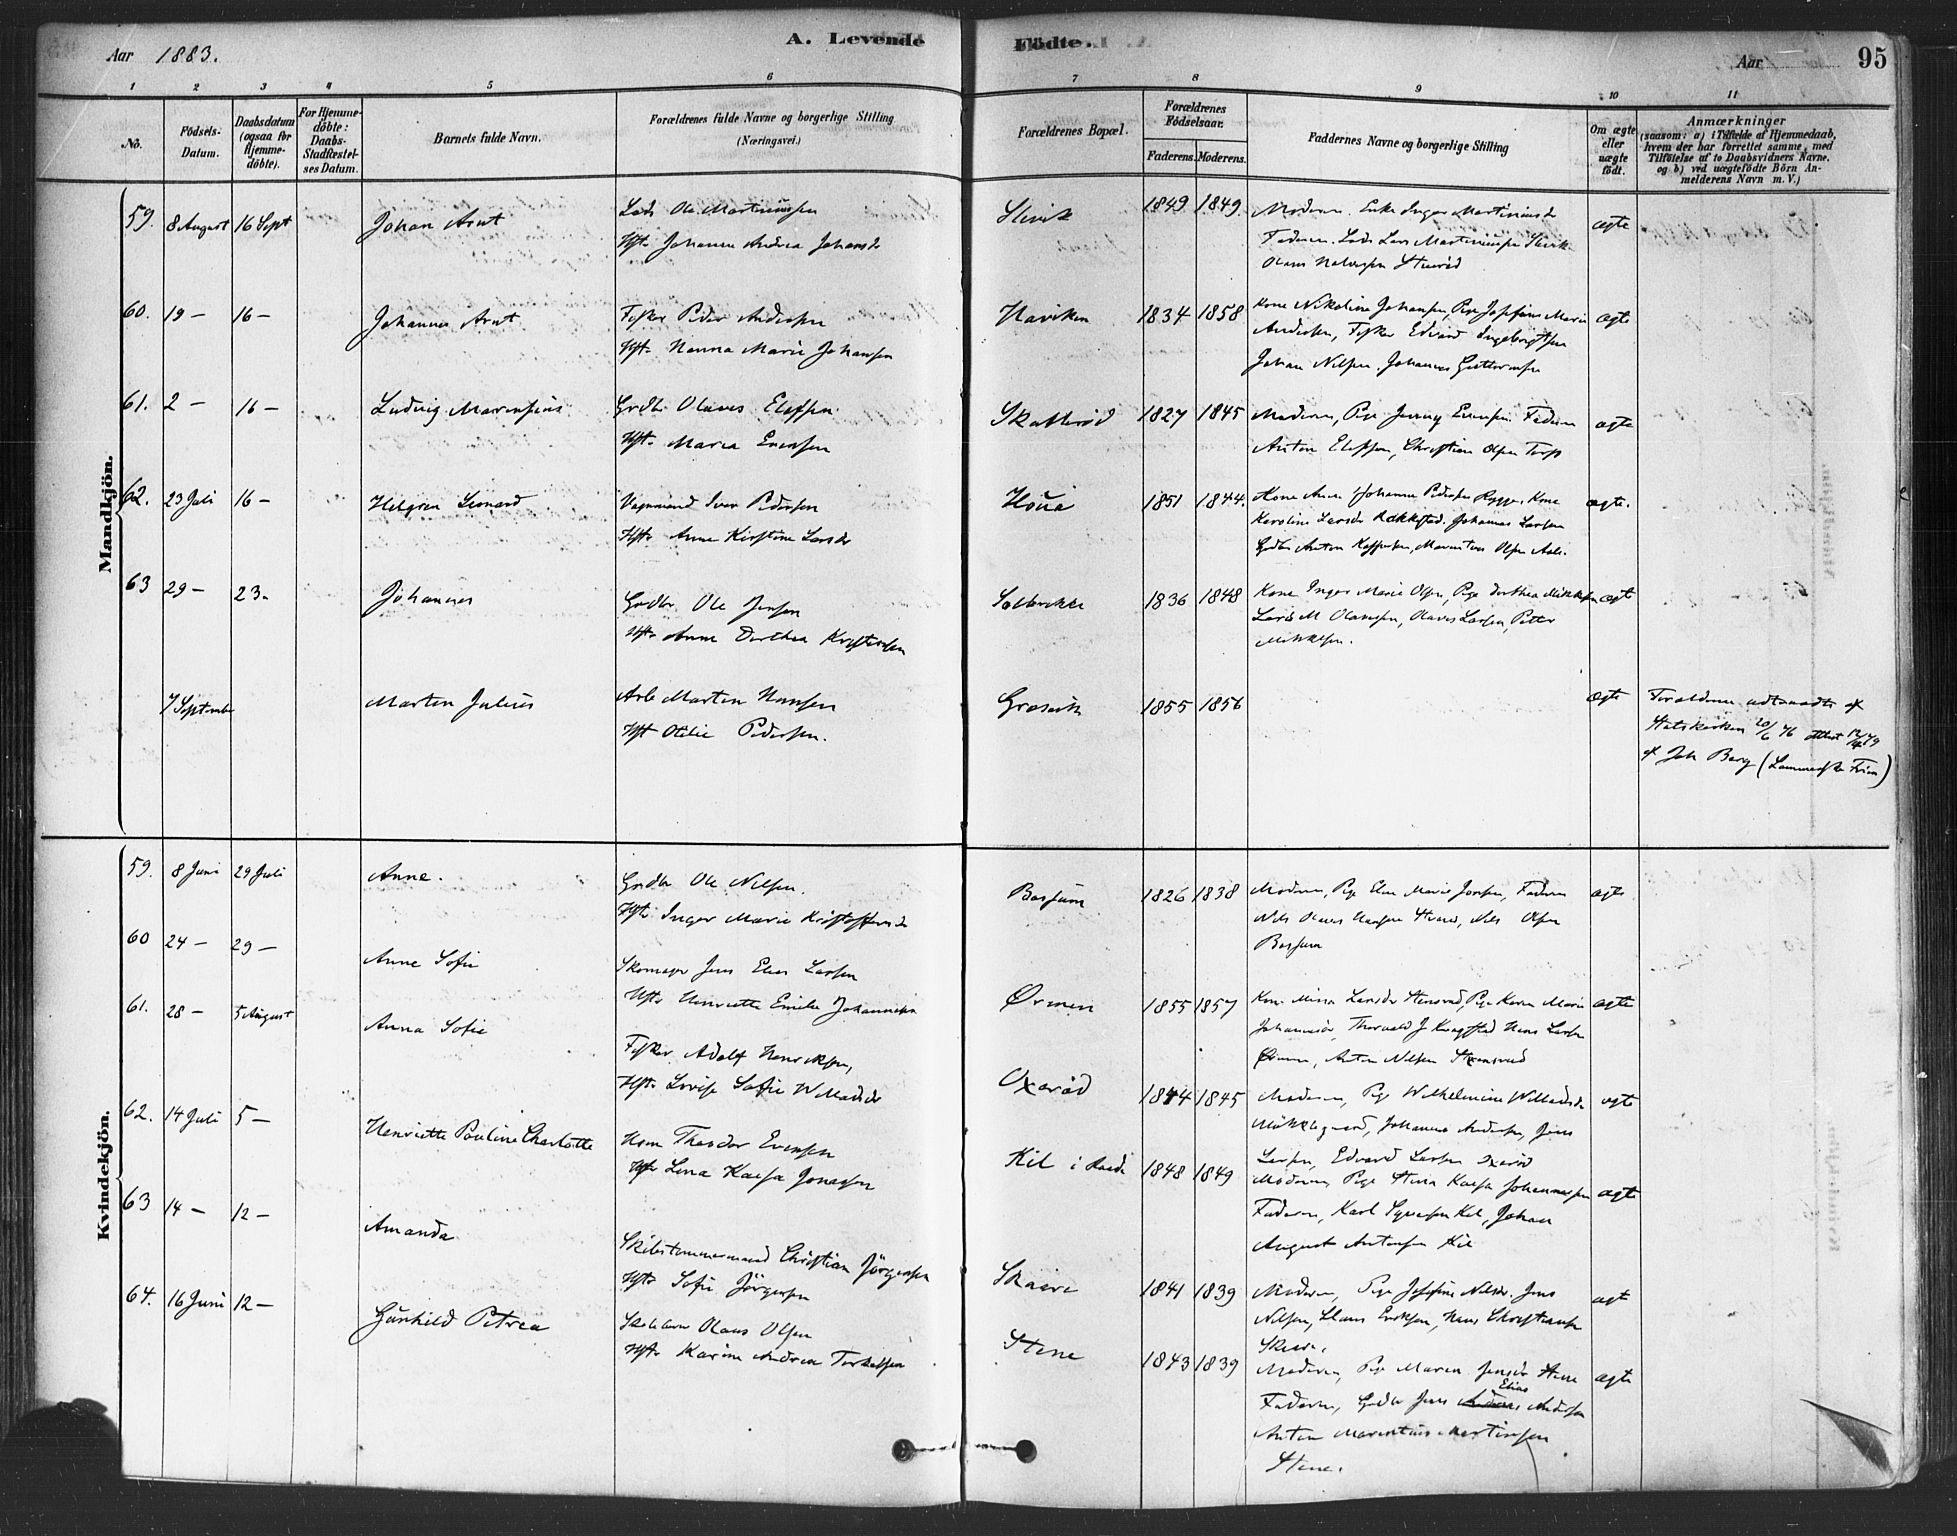 Aar 1883.
A. Levende
Födte.
Aar
95
1 2 3 4 5 6
7 8 9 10 11
No.
Födsels-
Datum.
Daabsdatum
(ogsaa for
Hjemme-
döbte).
For Hjemme-
döbte:
Daabs-
Stadfæstel-
ses Datum.
Barnets fulde Navn.
Forældrenes fulde Navne og borgerlige Stilling
(Næringsvei.)
Forældrenes Bopæl.
Forældrenes
Födselsaar.
Faderens. Moderens.
Faddernes Navne og borgerlige Stilling
Om ægte
eller
uægte
födt.
Anmærkninger
(saasom: a) i Tilfælde af Hjemmedaab,
hvem der har forrettet samme, med
Tilföielse af to Daabsvidners Navne.
og b) ved uægtefödte Börn An-
melderens Navn m. V.)
Mandkjön.
59. 8 August 16 Sept Johan Arnt
Lods Ole Martinussen
Hst. Johanne Andrea Johansdr
1849 1849
Moderen. Enke Inger Martiniusdr
Faderen. Lods Lars Martinussen
ægte
60. 19 — 16 — Johannes Arnt
Fisker Peder Andersen
Hst. Hanna Marie Johansen
Haviken 1834 1858
Kone Nikoline Johansen, Pge Josefine Marie
Andersen, Fisker Edvard Ingebrigtsen
Johan Nilsen. Johannes Guttormsen
ægte
61. 2 — 16 — Ludvig Marensius
Grdbr Olaves Elefsen
Hst. Maria Evensen
Skatterød 1827 1845
Moderen, Pge Jenny Evensen. Faderen
Anton Elefsen, Christian Olsen Torp
ægte
62. 23 Juli 16 — Helgren Leonard
Vognmand Iver Pedersen
Hst. Anne Kirstine Larsdr
1851 1844.
Kone Anne Johanne Pedersen Rygge, Kone
Karoline Larsdr Rakkestad. Johannes Larsen
Grdbr Anton Olsen
ægte.
63 29 — 23 — Johannes
Grdbr Ole Jensen
Hst. Anne Dorthea Kristensen
1836 1848
Kone Inger Marie Olsen, Pge Dorthea Mikkelsen
Lars M Olavesen, Olaves Larsen, Petter
Mikkelsen.
ægte
7 September Marten Julius
Arb Marten Hansen
Hst Otilie Pedersen.
Græsvik 1855 1856
ægte
Forældrene udtraadte af
Statskirken 20/6 76 attest 12/4 79
af Joh Berg (Lammerske Frim)
Kvindekjön.
59. 8 Juni 29 Juli Anne.
Grdbr Ole Nilsen.
Hst. Inger Marie Kristoffersdr
1826 1838
Moderen, Pge Elen Marie Jonsen, Faderen
Nils Olaves Hansen, Nils Olsen
ægte
60 24 — 29 — Anne Sofie
Skomager Jens Elias Larsen
Hst. Henriette Emilie Johannesen
Ørmen 1855 1857
Kone Minna Larsdr, Pge Karen Marie
Johannesdr, Thorvald J Kragstad Hans Larsen
Ørmen, Anton Nilsen
ægte
61. 28 — 5 August Anna Sofie
Fisker Adolf Henriksen,
Hst. Lovise Sofie Willadsdr
Oxerød 1844 1845
Moderen, Pge Wilhelmine Willadsdr
Johannes Andersen, Jens
Larsen, Edvard Larsen Oxerød
ægte
62. 14 Juli 5 — Henriette Pauline Charlotte
Hsm Theodor Evensen
Hst. Lena Kaisa Jonassen
Kil i Raade 1848 1849
Moderen, Pge Stina Kaisa Johannessen
Faderen, Karl Syversen Kil, Johan
August Antonsen Kil
ægte
63 14 — 12 — Amanda
Skibstømmermand Christian Jörgensen
Hst. Sofie Jörgensen
Skaare 1841 1839
Moderen, Pge Josefine Nilsdr. Jens
Nilsen, Claus Eriksen, Hans Christiansen
Skaare.
ægte
64. 16 Juni 12 — Gunhild Petrea
Olaus Olsen
Hst. Karine Andrea Torkelsen
Stene 1843 1839
Moderen, Pge Maren Jensdr Stene
Faderen, Grdbr Jens Elias Andersen
Anton Marentius Martinsen
Stene.
ægte